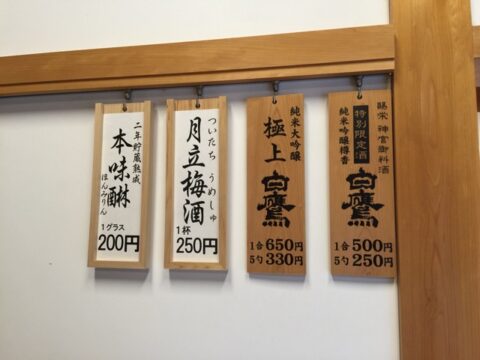 賜栄 神宮御料酒
特別限定酒
純米吟醸樽香
白鷹
1合500円
5勺250円
純米大吟醸
極上
白鷹
1合650円
5勺330円
ついたち うめしゅ
月立梅酒
1杯
250円
二年貯蔵熟成
本味醂
ほんみりん
1グラス
200円